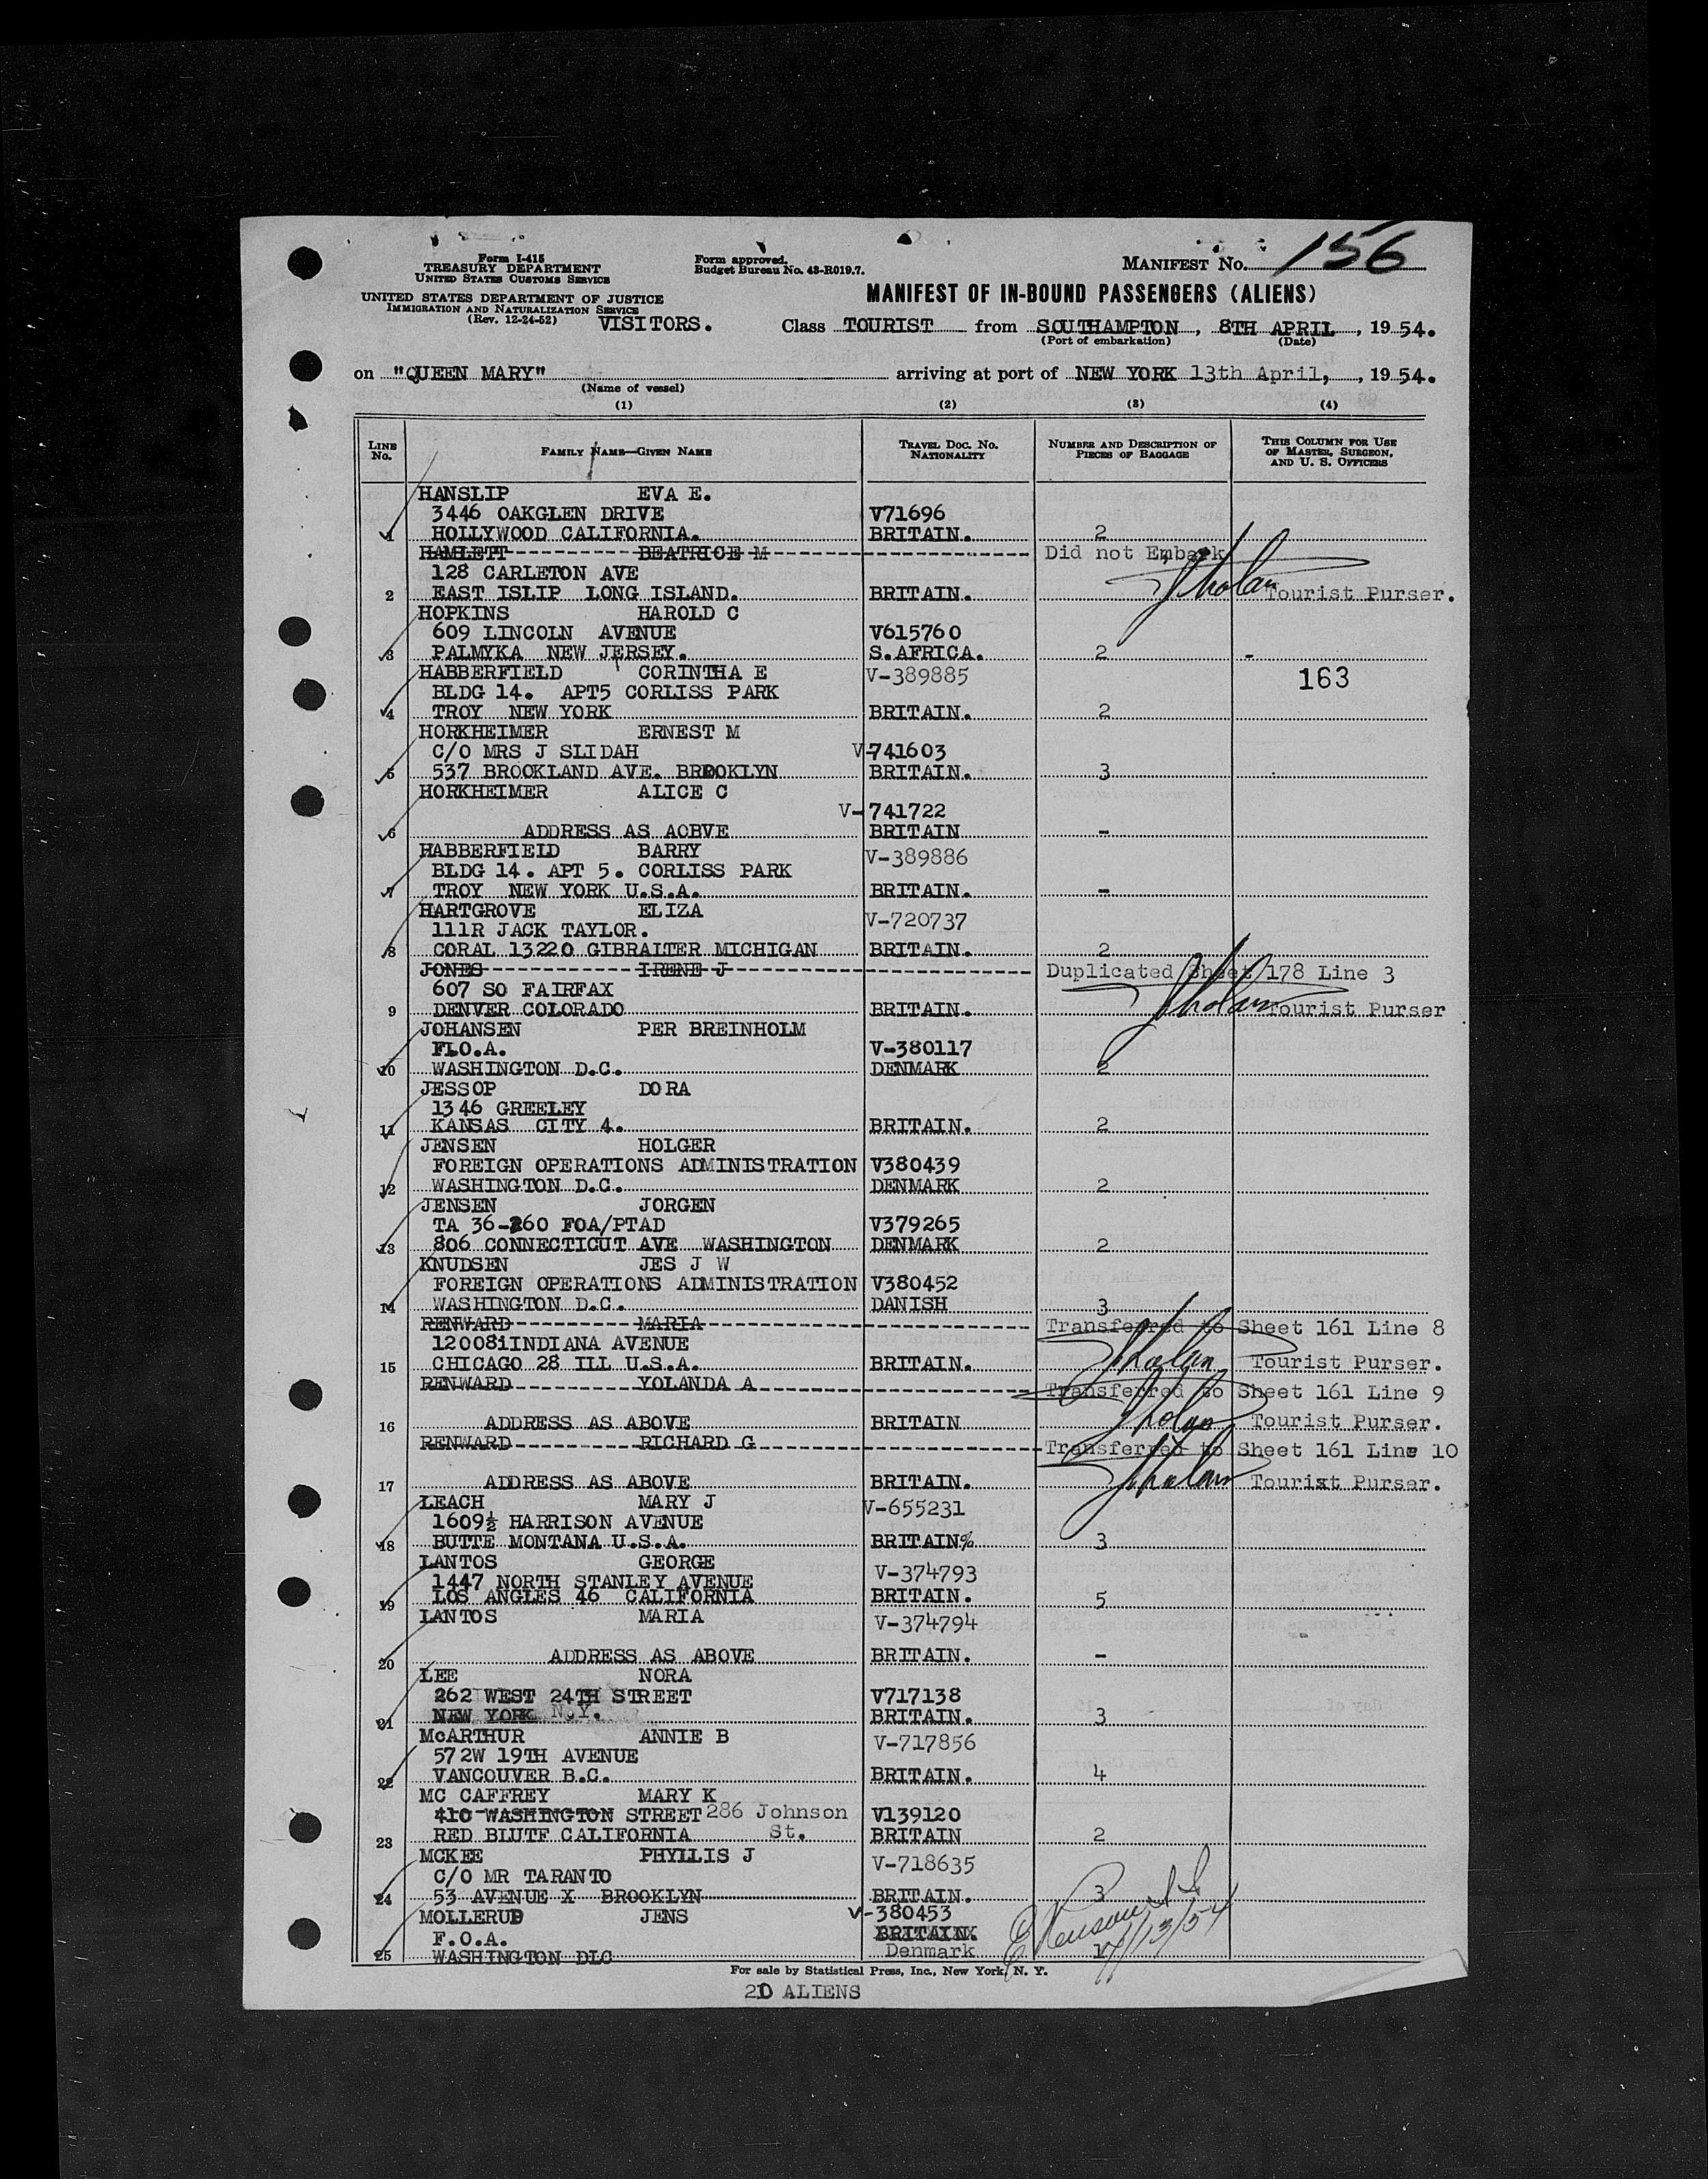 Form I-415
TREASURY DEPARTMENT
UNITED STATES CUSTOMS SERVICE
Form approved.
Budget Bureau No. 43-R019.7.
MANIFEST No. 156
UNITED STATES DEPARTMENT OF JUSTICE
IMMIGRATION AND NATURALIZATION SERVICE
(Rev. 12-24-52) VISITORS.
MANIFEST OF IN-BOUND PASSENGERS (ALIENS)
Class TOURIST from SOUTHAMPTON, 8TH APRIL, 1954.
(Port of embarkation) (Date)
on "QUEEN MARY" arriving at port of NEW YORK 13th April, , 1954.
(Name of vessel)
(1) (2) (3) (4)
LINE No. FAMILY NAME—GIVEN NAME TRAVEL DOC. NO. NATIONALITY NUMBER AND DESCRIPTION OF PIECES OF BAGGAGE THIS COLUMN FOR USE OF MASTER, SURGEON, AND U. S. OFFICERS
HANSLIP EVA E.
3446 OAKGLEN DRIVE V71696
1 HOLLYWOOD CALIFORNIA. BRITAIN. 2
HAMLETT BEATRICE M Did not Embark
128 CARLETON AVE
2 EAST ISLIP LONG ISLAND. BRITAIN. Tourist Purser.
HOPKINS HAROLD C
609 LINCOLN AVENUE V615760
3 PALMYKA NEW JERSEY. S.AFRICA. 2 -
HABBERFIELD CORINTHA E V-389885
BLDG 14. APT5 CORLISS PARK 163
4 TROY NEW YORK BRITAIN. 2
HORKHEIMER ERNEST M
C/O MRS J SLIDAH V-741603
5 537 BROOKLAND AVE. BROOKLYN BRITAIN. 3
HORKHEIMER ALICE C
V-741722
6 ADDRESS AS AOBVE BRITAIN -
HABBERFIELD BARRY V-389886
BLDG 14. APT 5. CORLISS PARK
7 TROY NEW YORK U.S.A. BRITAIN. -
HARTGROVE ELIZA V-720737
111R JACK TAYLOR.
8 CORAL 13220 GIBRAITER MICHIGAN BRITAIN. 2
JONES IRENE J Duplicated Sheet 178 Line 3
607 SO FAIRFAX
9 DENVER COLORADO BRITAIN. Tourist Purser
JOHANSEN PER BREINHOLM
F.O.A. V-380117
10 WASHINGTON D.C. DENMARK 2
JESSOP DORA
1346 GREELEY
11 KANSAS CITY 4. BRITAIN. 2
JENSEN HOLGER
FOREIGN OPERATIONS ADMINISTRATION V380439
12 WASHINGTON D.C. DENMARK 2
JENSEN JORGEN
TA 36-260 FOA/PTAD V379265
13 806 CONNECTICUT AVE WASHINGTON DENMARK 2
KNUDSEN JES J W
FOREIGN OPERATIONS ADMINISTRATION V380452
14 WASHINGTON D.C. DANISH 3
RENWARD MARIA Transferred to Sheet 161 Line 8
12008iINDIANA AVENUE
15 CHICAGO 28 ILL U.S.A. BRITAIN. Tourist Purser.
RENWARD YOLANDA A Transferred to Sheet 161 Line 9
16 ADDRESS AS ABOVE BRITAIN Tourist Purser.
RENWARD RICHARD G Transferred to Sheet 161 Line 10
17 ADDRESS AS ABOVE BRITAIN. Tourixt Purser.
LEACH MARY J V-655231
1609½ HARRISON AVENUE
18 BUTTE MONTANA U.S.A. BRITAIN% 3
LANTOS GEORGE V-374793
1447 NORTH STANLEY AVENUE
19 LOS ANGLES 46 CALIFORNIA BRITAIN. 5
LANTOS MARIA V-374794
20 ADDRESS AS ABOVE BRITAIN. -
LEE NORA
262 WEST 24TH STREET V717138
21 NEW YORK N.Y. BRITAIN. 3
McARTHUR ANNIE B V-717856
572W 19TH AVENUE
22 VANCOUVER B.C. BRITAIN. 4
MC CAFFREY MARY K
410 WASHINGTON STREET 286 Johnson V139120
23 RED BLUTF CALIFORNIA St. BRITAIN 2
MCKEE PHYLLIS J V-718635
C/O MR TARANTO
24 53 AVENUE X BROOKLYN BRITAIN. 3
MOLLERUP JENS V-380453
F.O.A. BRITAIN.
25 WASHINGTON DLC Denmark 1
4/13/54
For sale by Statistical Press, Inc., New York, N. Y.
20 ALIENS